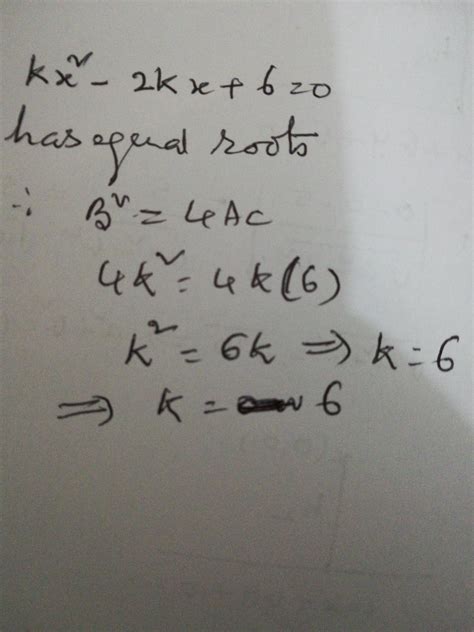 kx² - 2kx + 6 = 0
has equal roots
∴ B² = 4AC
4k² = 4k(6)
k² = 6k ⇒ k = 6
⇒ k = 6